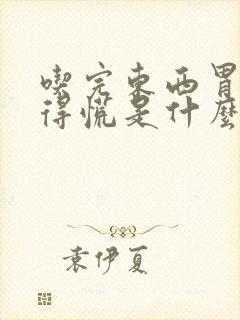 喫完东西胃
得慌是什麼
袁伊夏